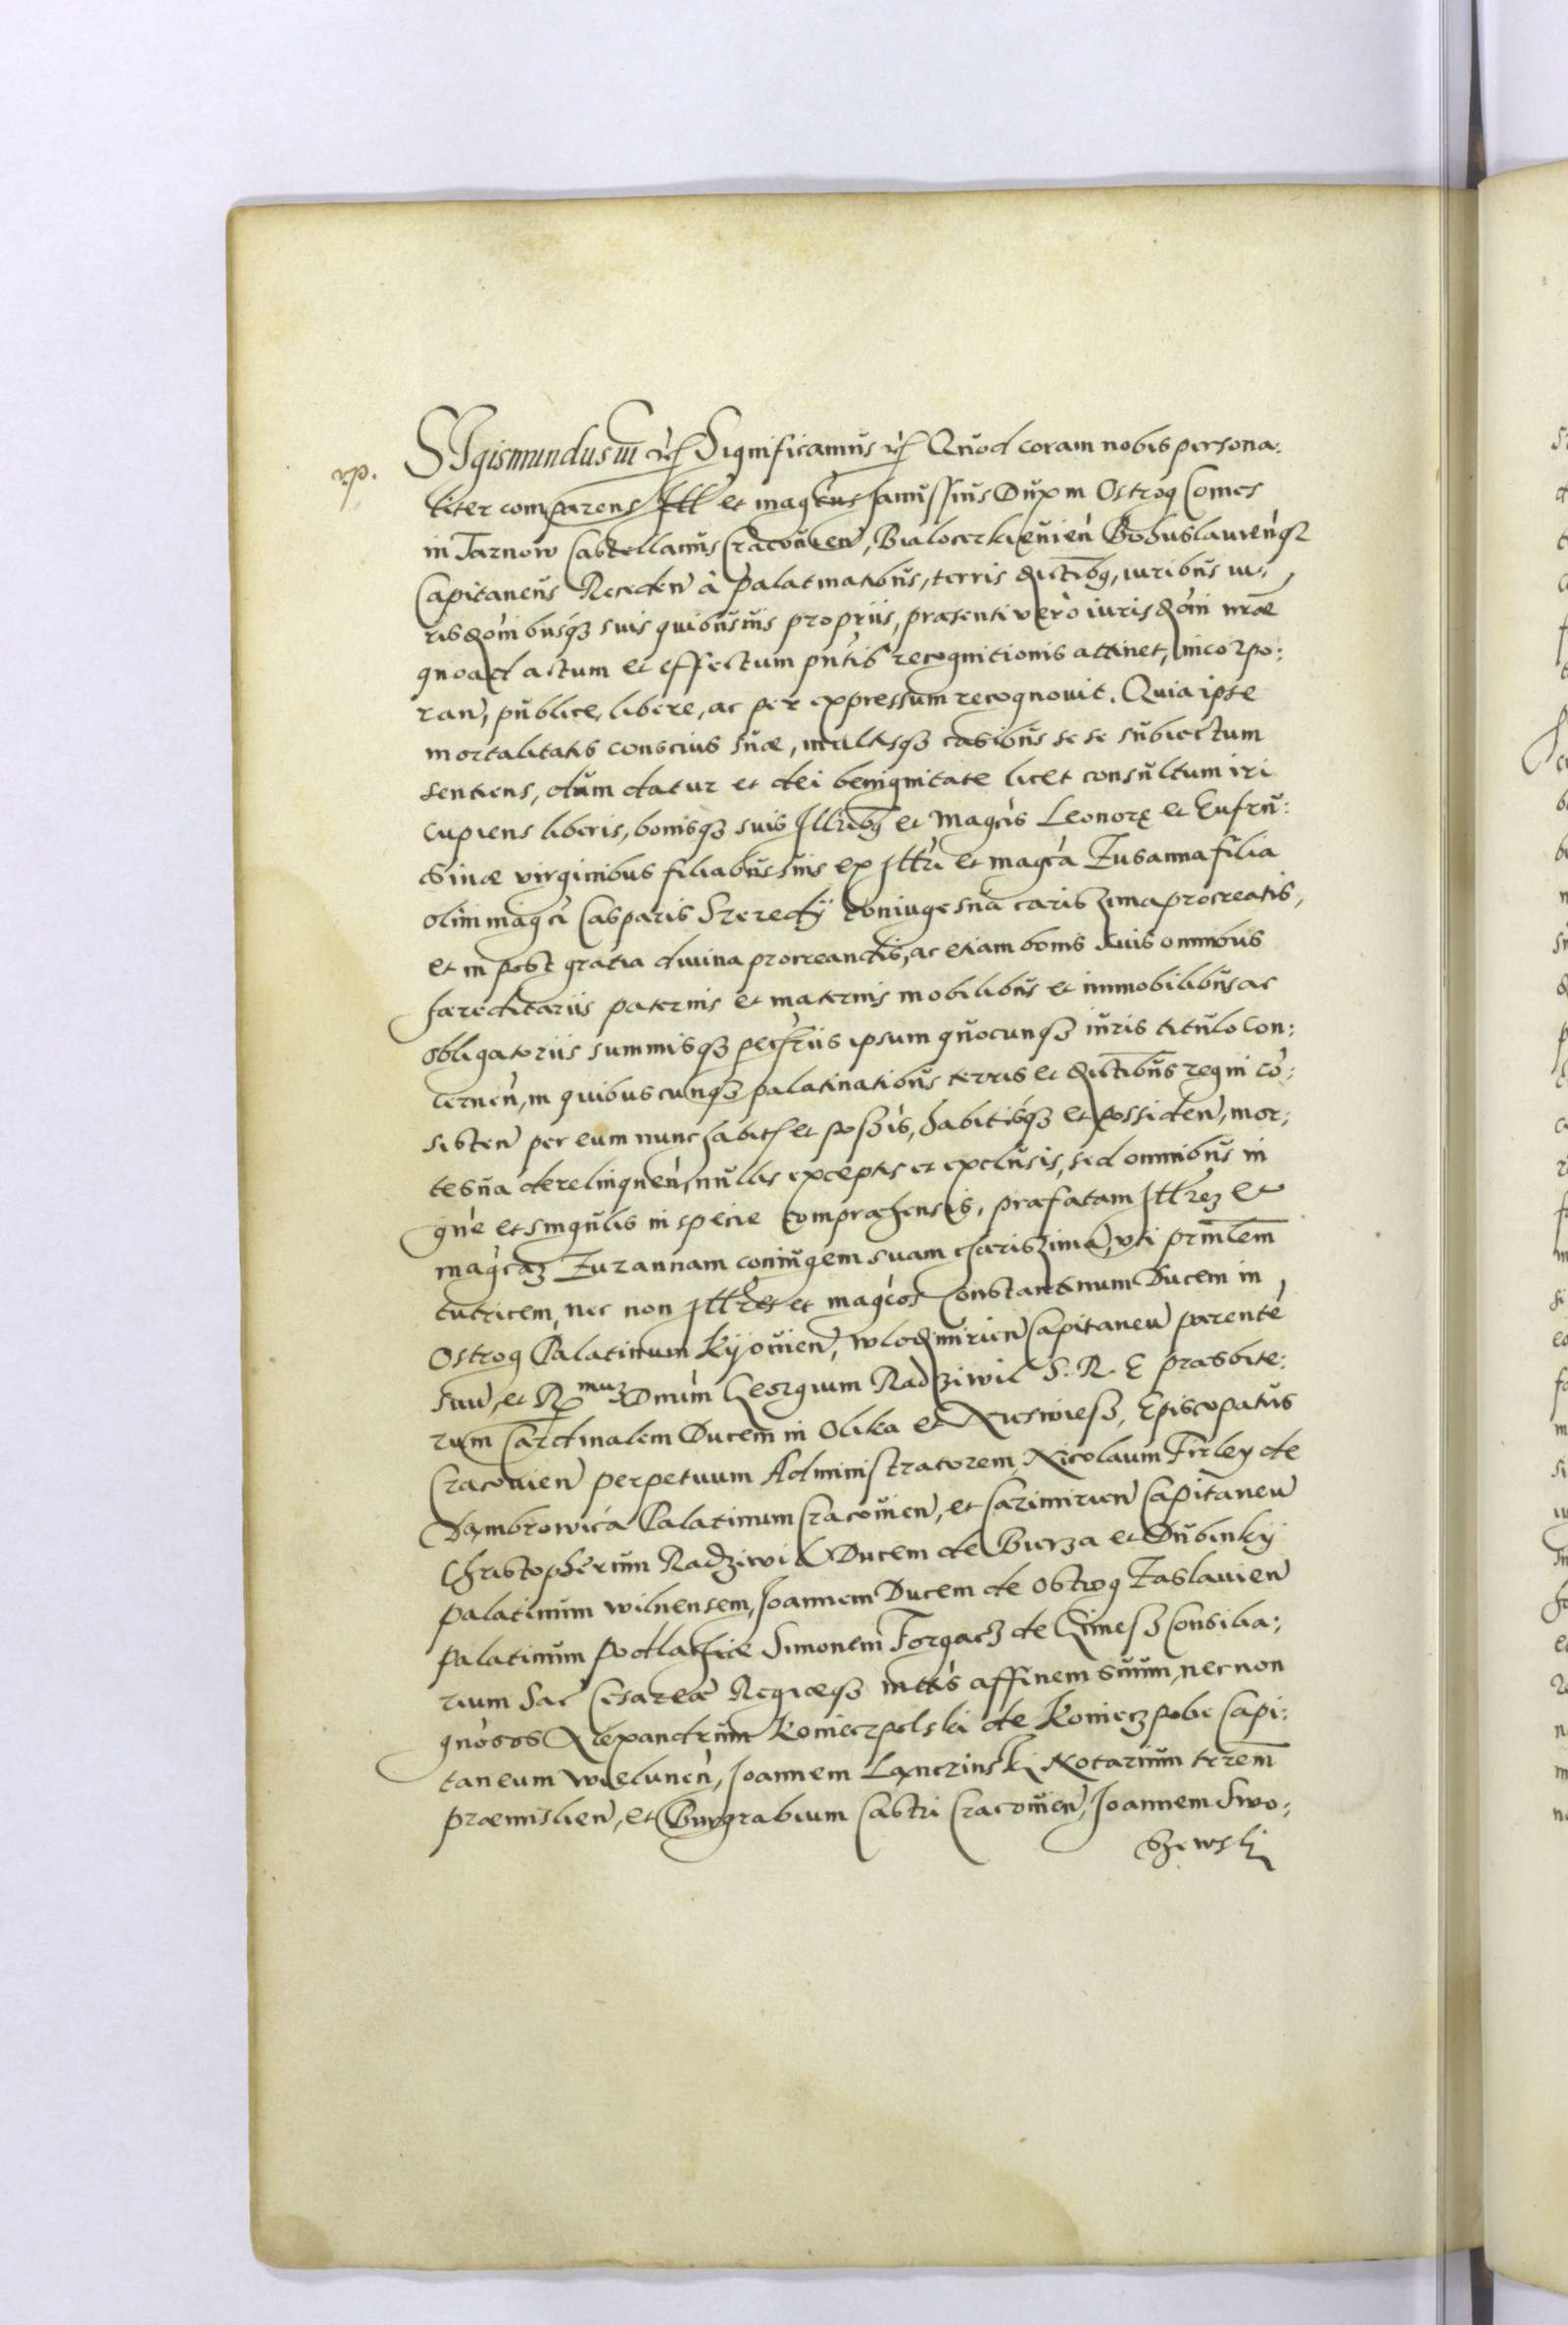 rp.
SIgismundus III etc Significamus etc Quod coram nobis persona:
liter comparens Ill et magcus Janussius Dux in Ostrog Comes
in Tarnow Castellanus Cracovien, Bialocerkievien Bohuslavienqz
Capitaneus Receden à palatinatibus, terris districtibq, iuribus iu:
risdonibusqz suis quibusuis propriis, præsenti vero iurisdoni nræ
quoad actum et effectum pntis recognitionis attinet, incorpo:
ran, publice, libere, ac per expressum recognovit. Quia ipse
mortalitatis conscius suæ, multisqz casibus se se subiectum
sentiens, dum datur et dei benignitate licet consultum iri
cupiens liberis, bonisqz suis Illribq et Magcis Leonoræ et Eufru:
sinæ virginibus filiabus suis ex Illri et magca Zusanna filia
olim magci Casparis Szeredÿ coniuge sua cariszima procreatis,
et in post gratia divina procreandis, ac etiam bonis suis omnibus
hæreditariis paternis et maternis mobilibus et immobilibus ac
obligatoriis summisqz pecuriis ipsum quocunqz iuris titulo con:
cernen, in quibuscunqz palatinatibus terris et districtibus regni co:
sisten per eum nunc habit et possis, habitisqz et possiden, mor:
te sua derelinquen, nullis exceptis et exclusis, sed omnibus in
gne et singulis in specie compræhensis, præfatam Illrez et
magcaz Zuzannam coniugem suam chariszima, uti prinlem
tutricem, nec non Illres et magcos Constantinum Ducem in
Ostrog Palatinum Kijovien, Wlodimirien Capitaneu parente
suu, et Rmuz Dnum Georgium Radziwil S. R. E præsbite:
rum Cardinalem Ducem in Olika et Nieswiesz, Episcopatus
Cracovien perpetuum Administratorem, Nicolaum Firley de
Dambrowica Palatinum Cracovien, et Cazimirien Capitaneu
Christopherum Radziwil Ducem de Burza et Dubinkÿ
palatinum wilnensem, Joannem Ducem de Ostrog Zaslavien
palatinum podlachiæ Simonem Forgacz de Gimesz Consilia:
rium Sac Cesareæ Regiæqz mttis affinem suum, nec non
gnosos Alexandrum Koniecpolski de Koniecpole Capi:
taneum wielunen, Joannem Lanczinski Notarium terem
præmislien, et Burgrabium Castri Cracovien, Joannem Swo:
szewski